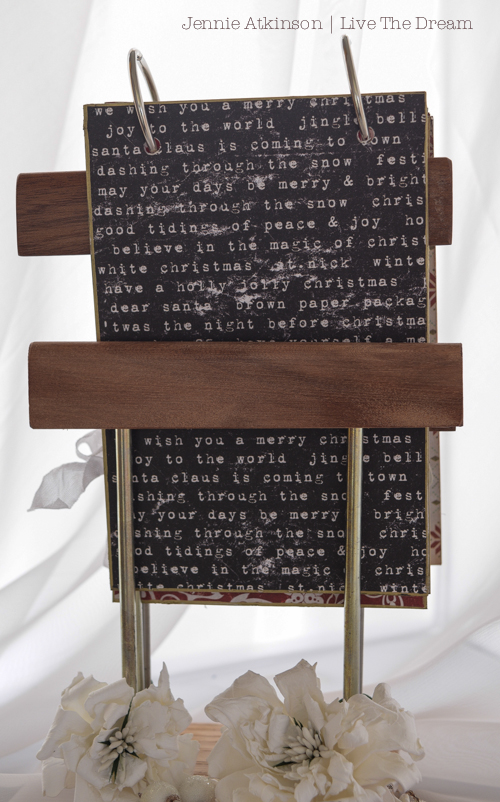 Jennie Atkinson | Live The Dream
we wish you a merry christmas
joy to the world jingle bells
santa claus is coming to town
dashing through the snow festi
may your days be merry & bright
dashing through the snow chris
good tidings of peace & joy ho
believe in the magic of christ
white christmas st.nick winte
have a holly jolly christmas
dear santa brown paper packag
'twas the night before christma
yourself a me
wish you a merry christmas
oy to the world jing bell
nta claus is coming t town
shing through the sno fest
y your days be merry brigh
shing through the sno chris
od tidings of peace & joy ho
believe in the magic chris
ite christmas st.nick winte